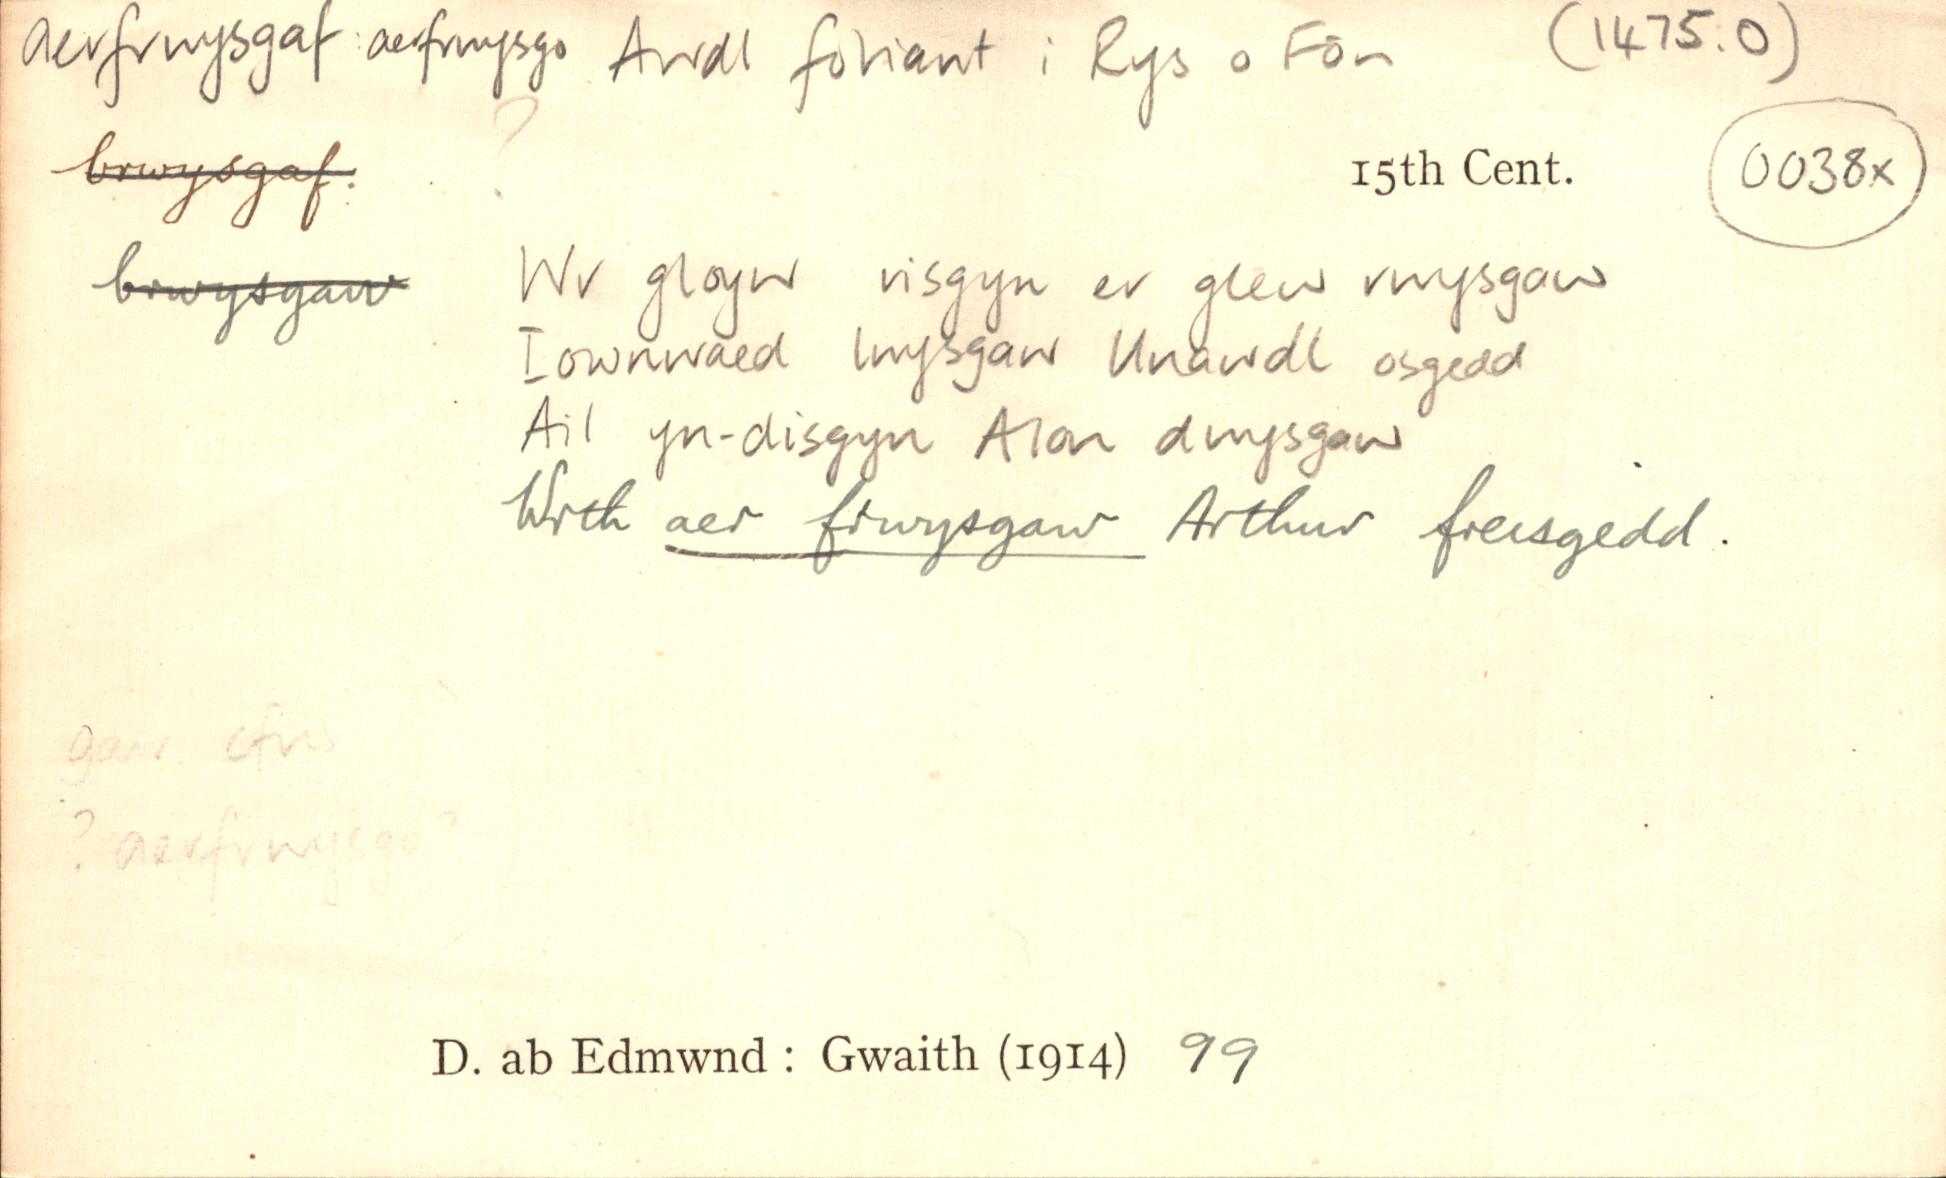 aerfrwysgaf: aerfrwysgo Awdl foliant i Rys o Fôn (1475.0)
?
brwysgaf.
15th Cent. 0038x
brwysgaw
Wr gloyw visgyn er glew rwysgaw
Iownwaed lwysgaw Unawdl osgedd
Ail yn-disgyn Alon dwysgaw
Wrth aer frwysgaw Arthur freisgedd.
gair cfns
? aerfrwysgo?
D. ab Edmwnd : Gwaith (1914) 99